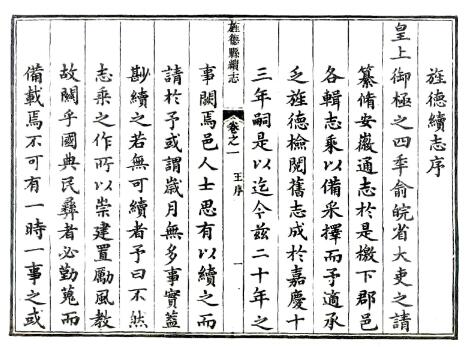 旌德續志序
皇上御極之四年俞皖省大吏之請
纂脩安徽通志於是檄下郡邑
各輯志乘以備采擇而予適承
乏旌德檢閱舊志成於嘉慶十
三年嗣是以迄今茲二十年之
旌德縣續志
卷之一
王序
一
事闕焉邑人士思有以續之而
請於予或謂歲月無多事實蓋
尠續之若無可續者予曰不然
志乘之作所以崇建置勵風教
故關乎國典民彝者必勤蒐而
備載焉不可有一時一事之或